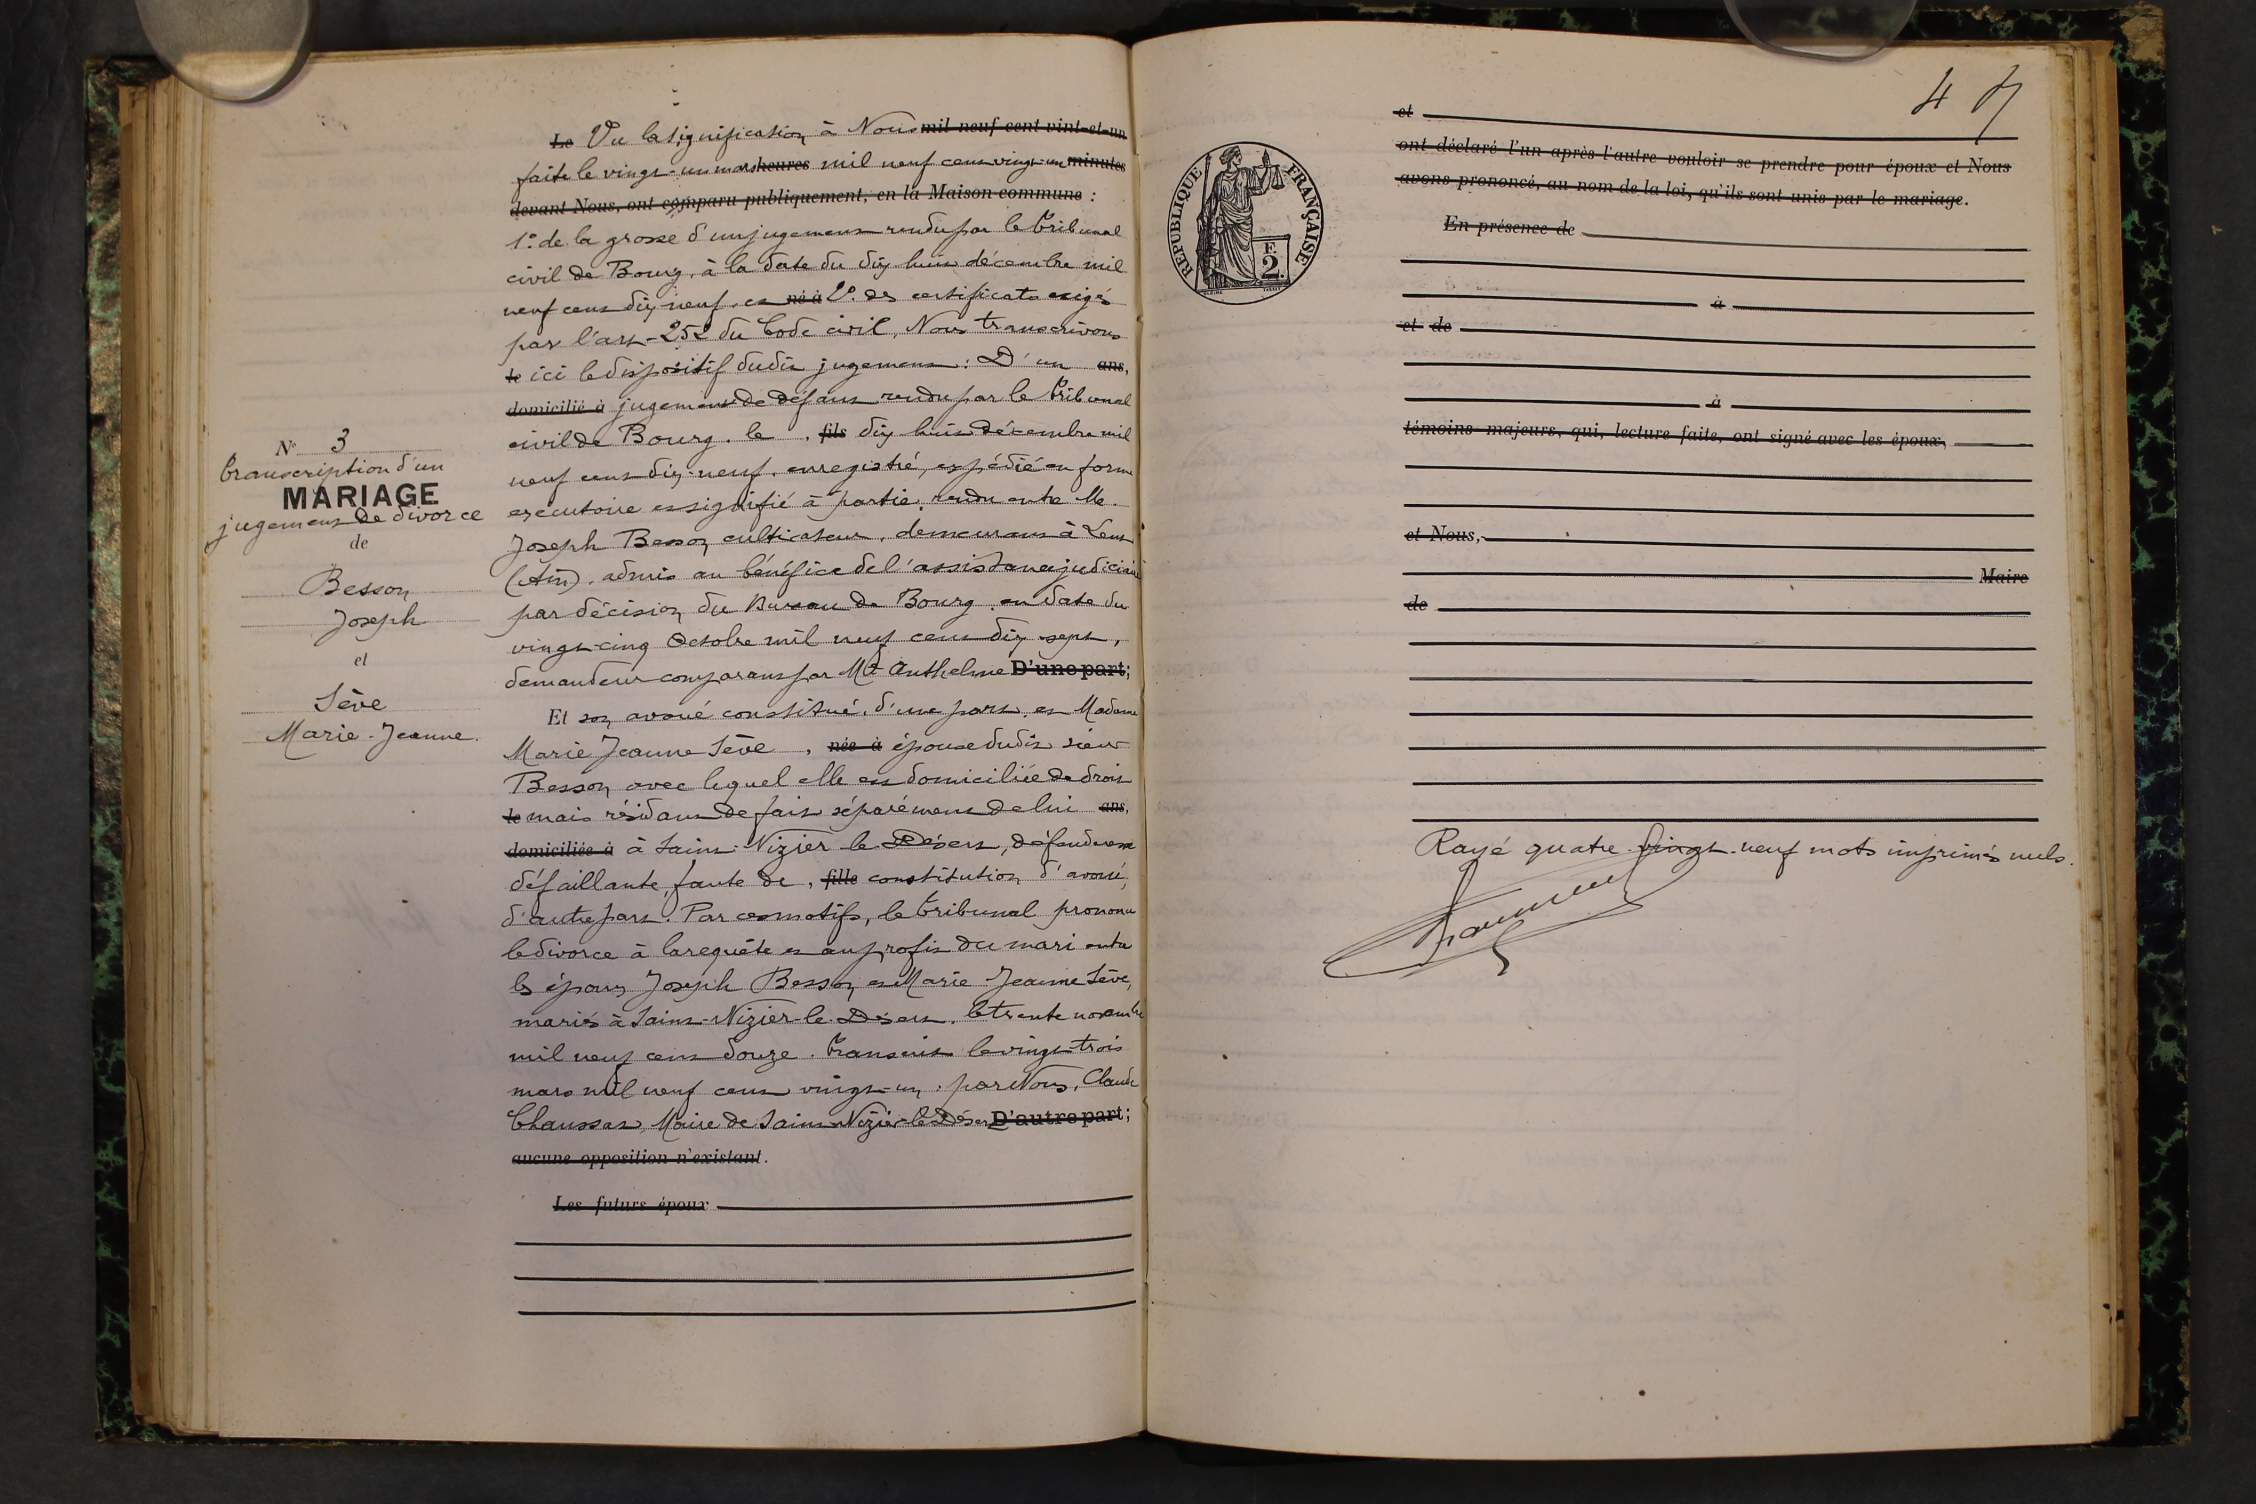 N° 3
Transcription d'un
MARIAGE
jugement de divorce
de
Besson
Joseph
et
Sève
Marie-Jeanne.
Le Vu la signification à Nous mil neuf cent vint-et-un
faite le vingt-un mars heures mil neuf cent vingt-un minutes
devant Nous, ont comparu publiquement, en la Maison commune :
1° de la grosse d'un jugement rendu par le Tribunal
civil de Bourg, à la date du dix huit décembre mil
neuf cent dix neuf, et né à 2° des certificats exigés
par l'art-252 du Code civil, Nous transcrivons
le ici le dispositif dudit jugement : D'un ans,
domicilié à jugement de défaut rendu par le Tribunal
civil de Bourg, le , fils dix huit décembre mil
neuf cent dix-neuf, enregistré, expédié en forme
exécutoire et signifié à partie, rendu entre Mr
Joseph Besson cultivateur, demeurant à Lent
(Ain), admis au bénéfice de l'assistance judiciaire
par décision du Bureau de Bourg en date du
vingt-cinq Octobre mil neuf cent dix sept,
demandeur comparant par Me Anthelme D'une part;
Et son avoué constitué, d'une part, et Madame
Marie Jeanne Sève , née à épouse dudit sieur
Besson avec lequel elle est domiciliée de droit
le mais résidant de fait séparément de lui ans,
domiciliée à à Saint-Nizier le Désert, défenderesse
défaillante, faute de , fille constitution d'avoué,
d'autre part. Par ces motifs, le tribunal prononce
le divorce à la requête et au profit du mari entre
les époux Joseph Besson et Marie-Jeanne Sève,
mariés à Saint-Nizier-le-Désert, le trente novembre
mil neuf cent douze. Transcrit le vingt-trois
mars mil neuf cent vingt-un, par Nous, Claude
Chaussat, Maire de Saint-Nizier-le-Désert D'autre part;
aucune opposition n'existant.
Les futurs époux
4
RÉPUBLIQUE FRANÇAISE
F.
2.
et
ont déclaré l'un après l'autre vouloir se prendre pour époux et Nous
avons prononcé, au nom de la loi, qu'ils sont unis par le mariage.
En présence de
à
et de
à
témoins majeurs, qui, lecture faite, ont signé avec les époux,
et Nous,
Maire
de
Rayé quatre-vingt-neuf mots imprimés nuls.